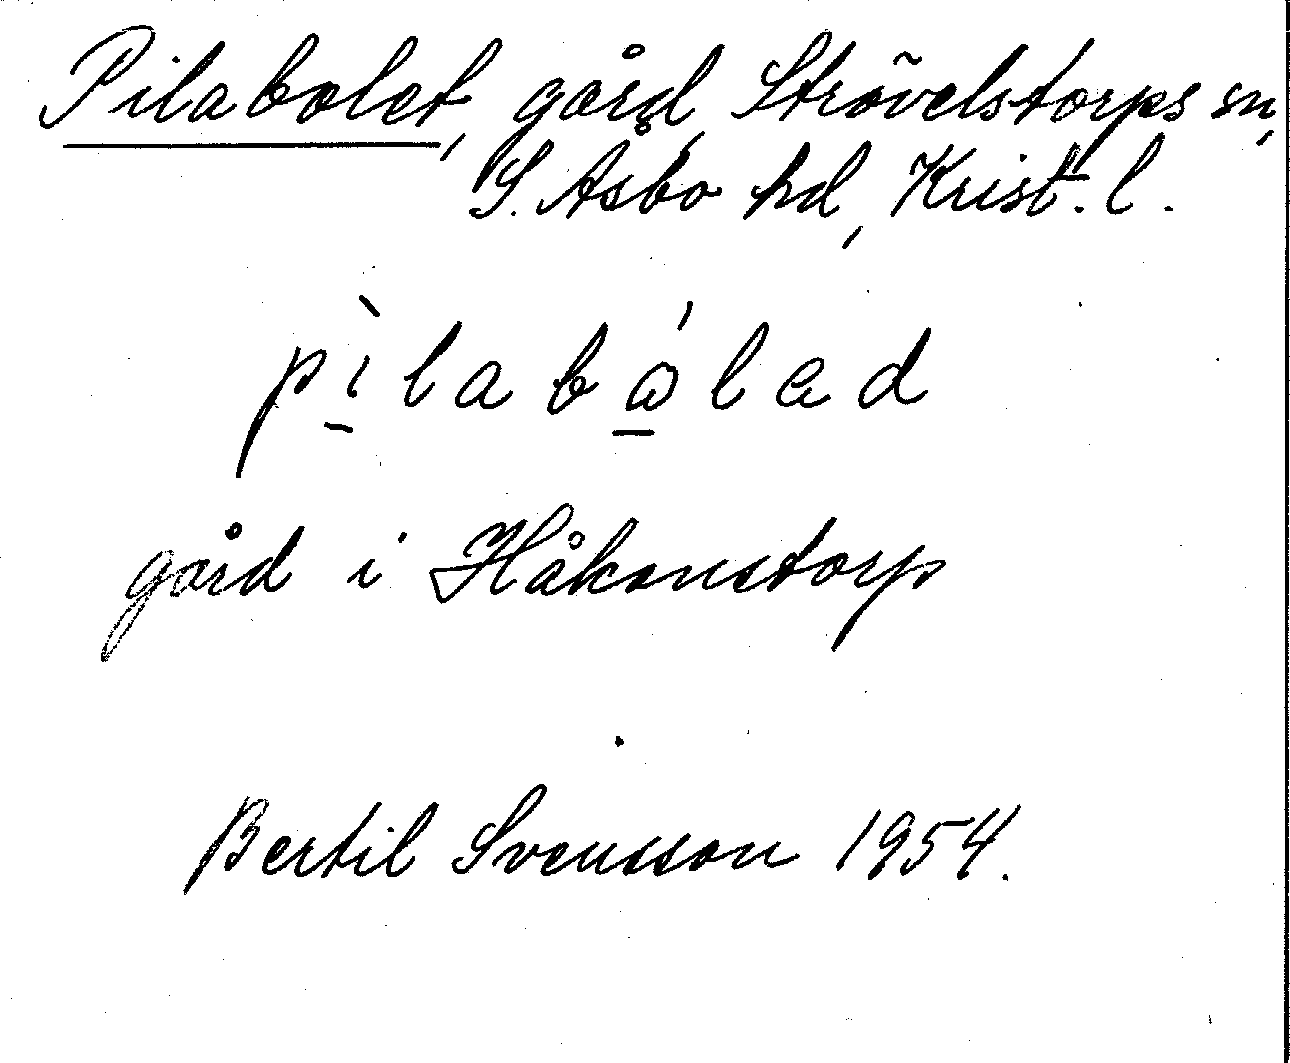 Pilabolet, gård, Strövelstorps sn,
S. Åsbo hd, Krist. l.
pìlabɷ́lad
gård i Håkanstorp
Bertil Svensson 1954.